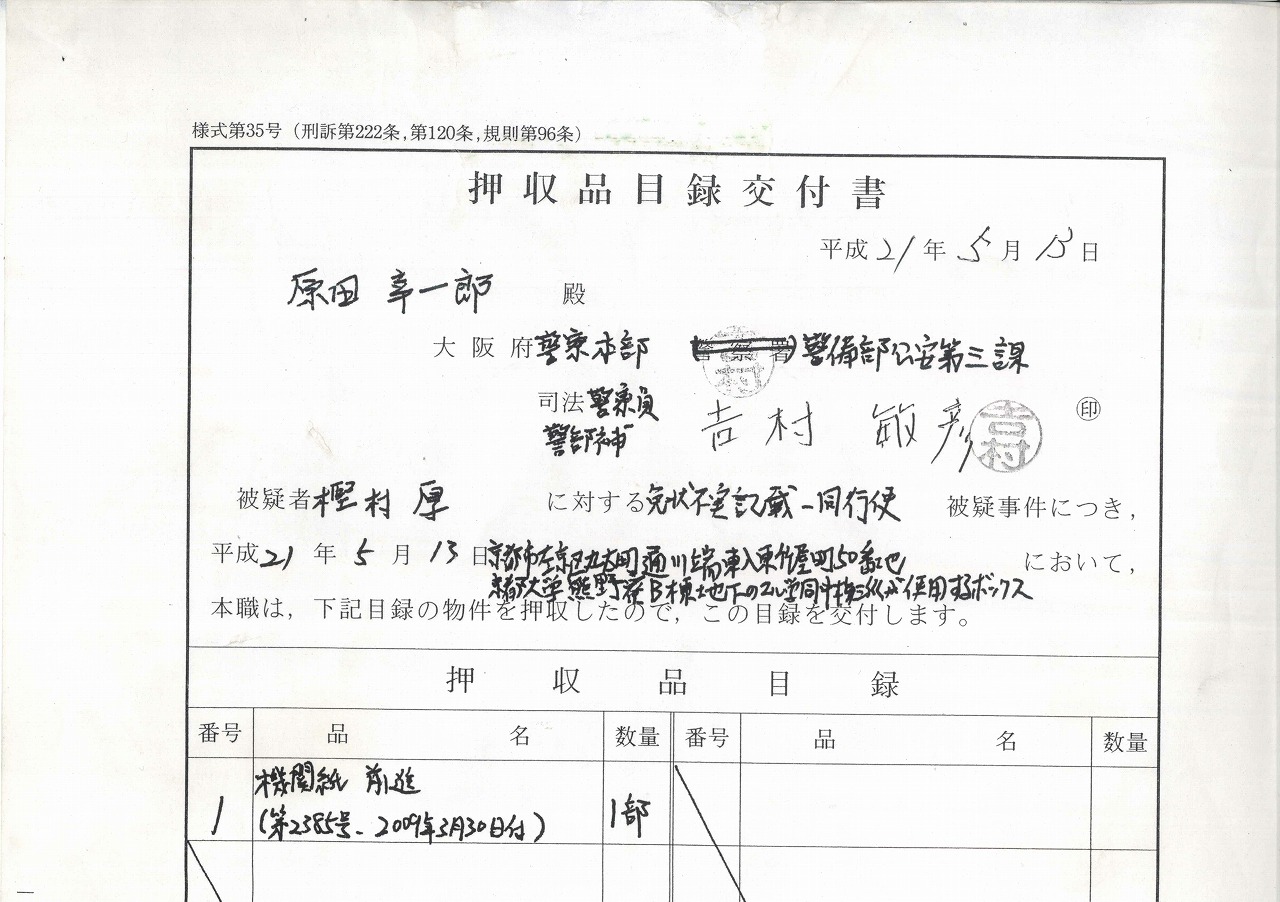 様式第35号（刑訴第222条,第120条,規則第96条）
押収品目録交付書
平成21年5月13日
原田 幸一郎 殿
大阪府警察本部 警察署 警備部公安第三課
吉村
司法警察員
警部補 吉村 敏彦 吉村 ㊞
被疑者樫村 厚 に対する免状不実記載・同行使 被疑事件につき，
平成21年5月13日京都市左京区丸太町通川端東入東竹屋町50番地 において，
京都大学熊野寮B棟地下の が使用するボックス
本職は，下記目録の物件を押収したので，この目録を交付します。
押収品目録
番号 品名 数量 番号 品名 数量
1 機関紙 前進 1部
(第2385号、2009年3月30日付)